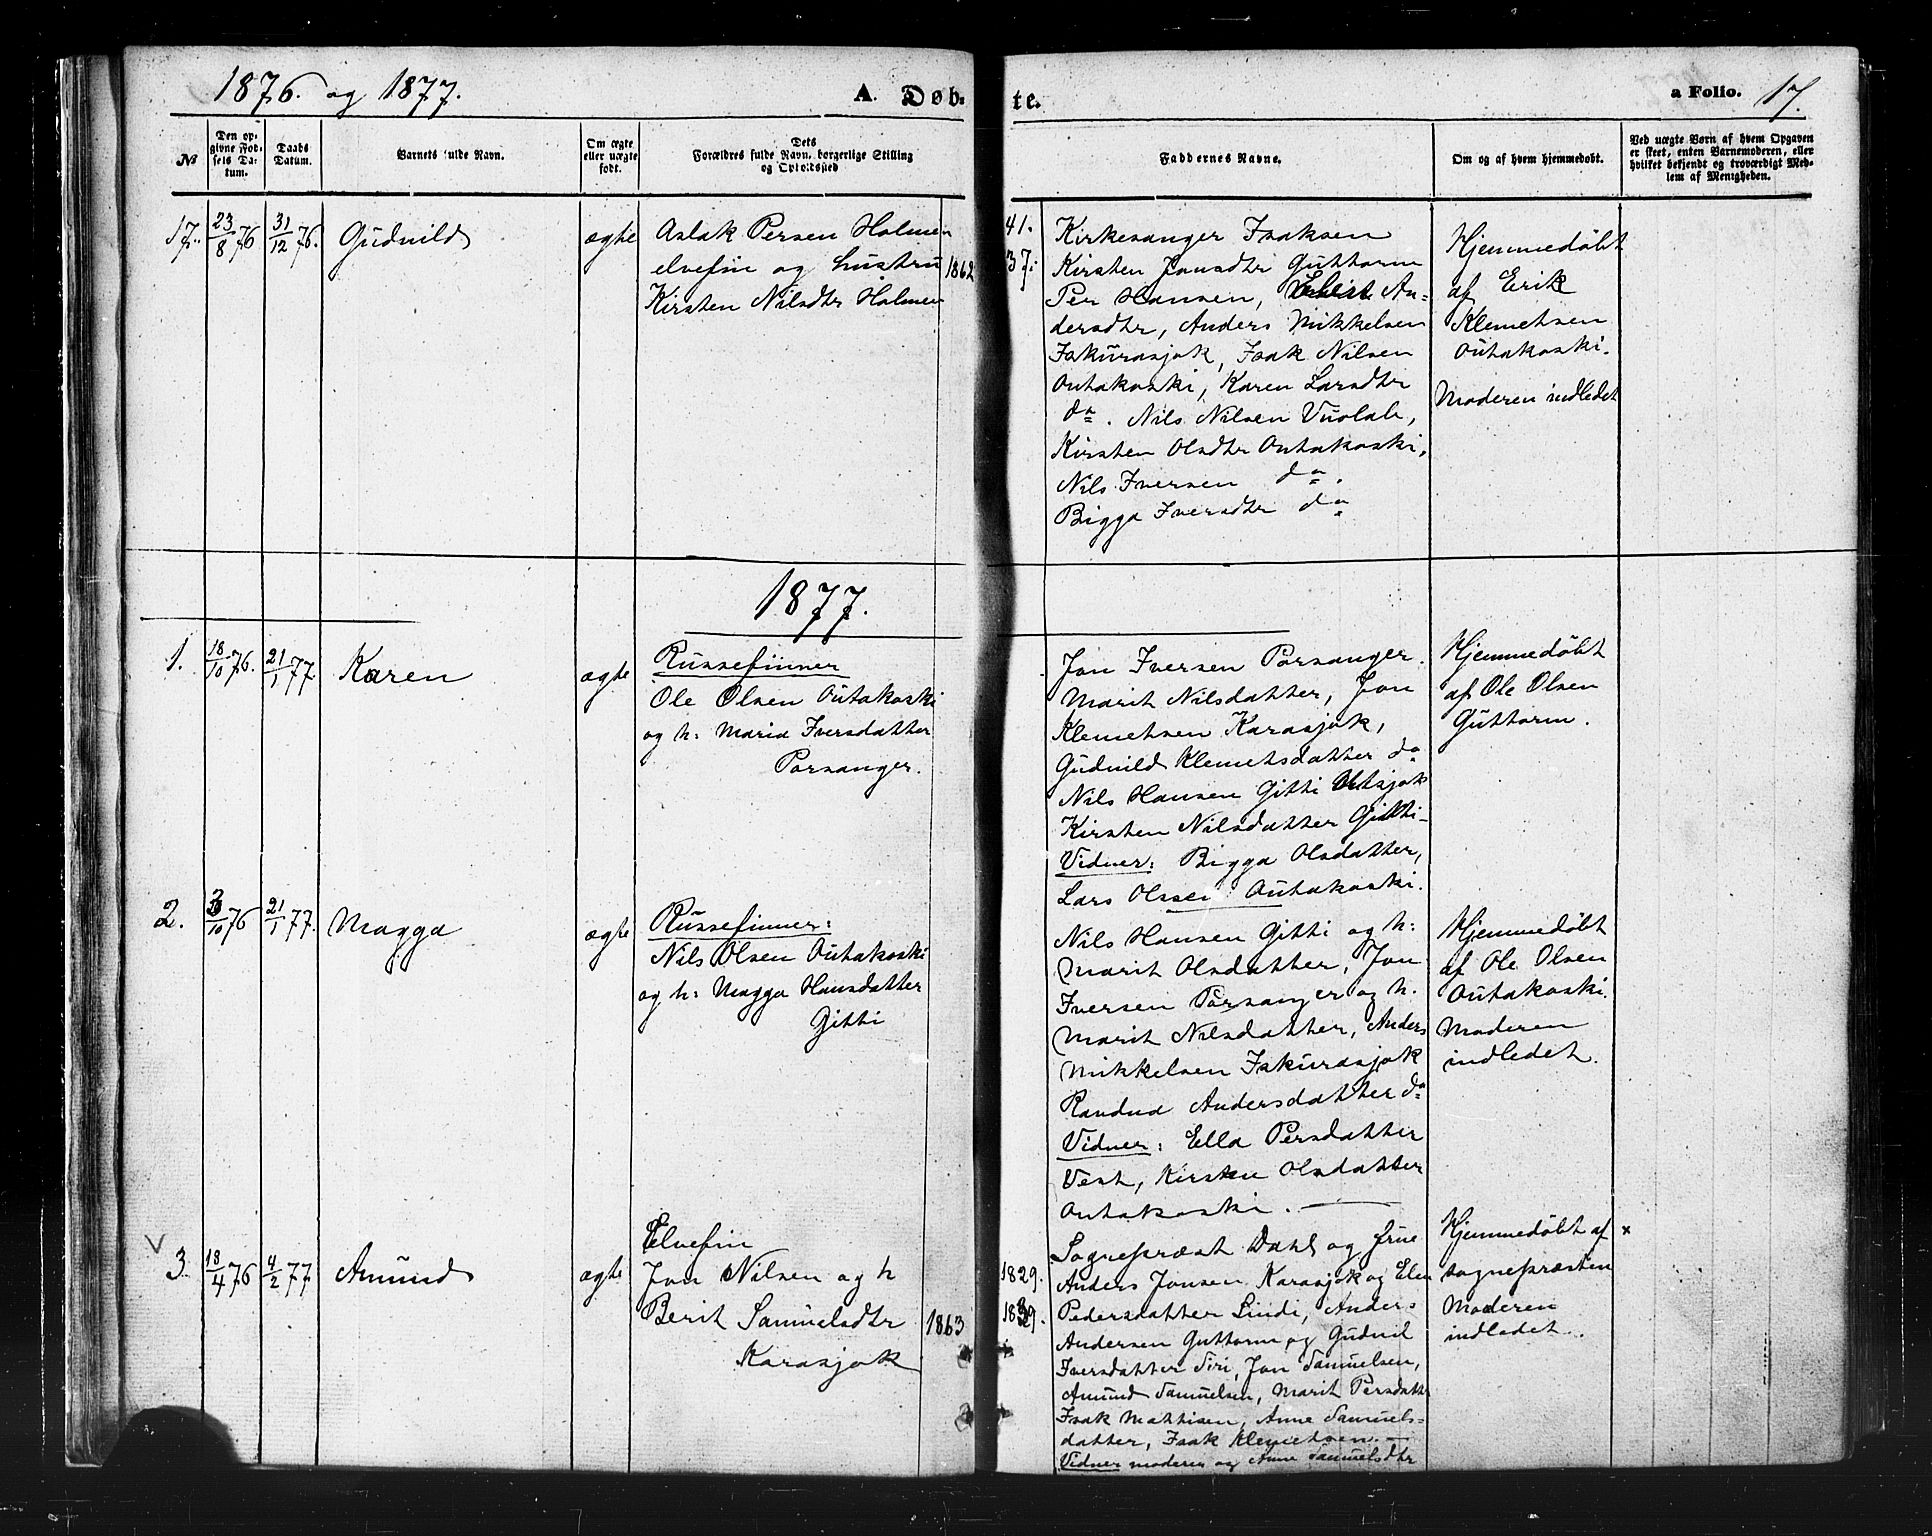 1876. og 1877.
A. Døb-
te.
a Folio. 17.
No
Den op-
givne Fød-
sels Da-
tum.
Daabs
Datum.
Barnets fulde Navn.
Om ægte
eller uægte
født.
Dets
Forældres fulde Navn, borgerlige Stilling
og Opholdssted
Faddernes Navne.
Om og af hvem hjemmedøbt.
Ved uægte Børn af hvem Opgaven
er skeet, enten Barnemoderen, eller
hvilket bekjendt og troværdigt Med-
lem af Menigheden.
17. 23/8 76 31/12 76. Gudnild ægte
Aslak Persen Holmen
elvefin og hustru 1862
Kirsten Nilsdtr Holmen
41.
37.
Kirkesanger Isaksen
Kirsten Jonsdtr Guttorm
Per Hansen, An=
dersdtr, Anders Mikkelsen
Iskurasjok, Isak Nilsen
Outakoski, Karen Larsdtr
do. Nils Nilsen Vuolab,
Kirsten Olsdtr Outakoski,
Nils Iversen do.
Bigga Iversdtr do
Hjemmedøbt
af Erik
Klemetsen
Outakoski.
Moderen indledet
1877.
1. 18/10 76. 21/1 77. Karen ægte
Russefinner
Ole Olsen Outakoski
og h: Maria Iversdatter
Porsanger.
Jon Iversen Porsanger.
Marit Nilsdatter, Jon
Klemetsen Karasjok,
Gudnild Klemetsdatter do
Nils Hansen Gitti Utsjok
Kirsten Nilsdatter Gitti-
Vidner: Bigga Olsdatter,
Lars Olsen Outakoski.
Hjemmedøbt
af Ole Olsen
Guttorm.
2. /10 76 21/1 77. Magga ægte
Russefinner:
Nils Olsen Outakoski
og h: Magga Hansdatter
Gitti
Nils Hansen Gitti og h:
Marit Olsdatter, Jon
Iversen Porsanger og h.
Marit Nilsdatter, Anders
Mikkelsen Iskurasjok
Randna Andersdatter do
Vidner: Ella Persdatter
Vest, Kirsten Olsdatter
Outakoski.
Hjemmedøbt
af Ole Olsen
Outakoski.
Moderen
indledet.
V
3. 18/4 76 4/2 77 Amund ægte
Elvefin
Jon Nilsen og h
Berit Samuelsdtr 1863
Karasjok
1829.
1839.
Sognepræst Dahl og frue
Anders Jonsen Karasjok og Elen
Pedersdatter Lindi, Anders
Andersen Guttorm og Gudnil
Iversdatter Siri, Jon Samuelsen,
Amund Samuelsen, Marit Persdatter
Isak Mathisen, Anne Samuels=
datter, Isak Klemetsen.
Vidner moderen og Anne Samuelsdtr
Hjemmedøbt af x
sognepræsten
Moderen
indledet.